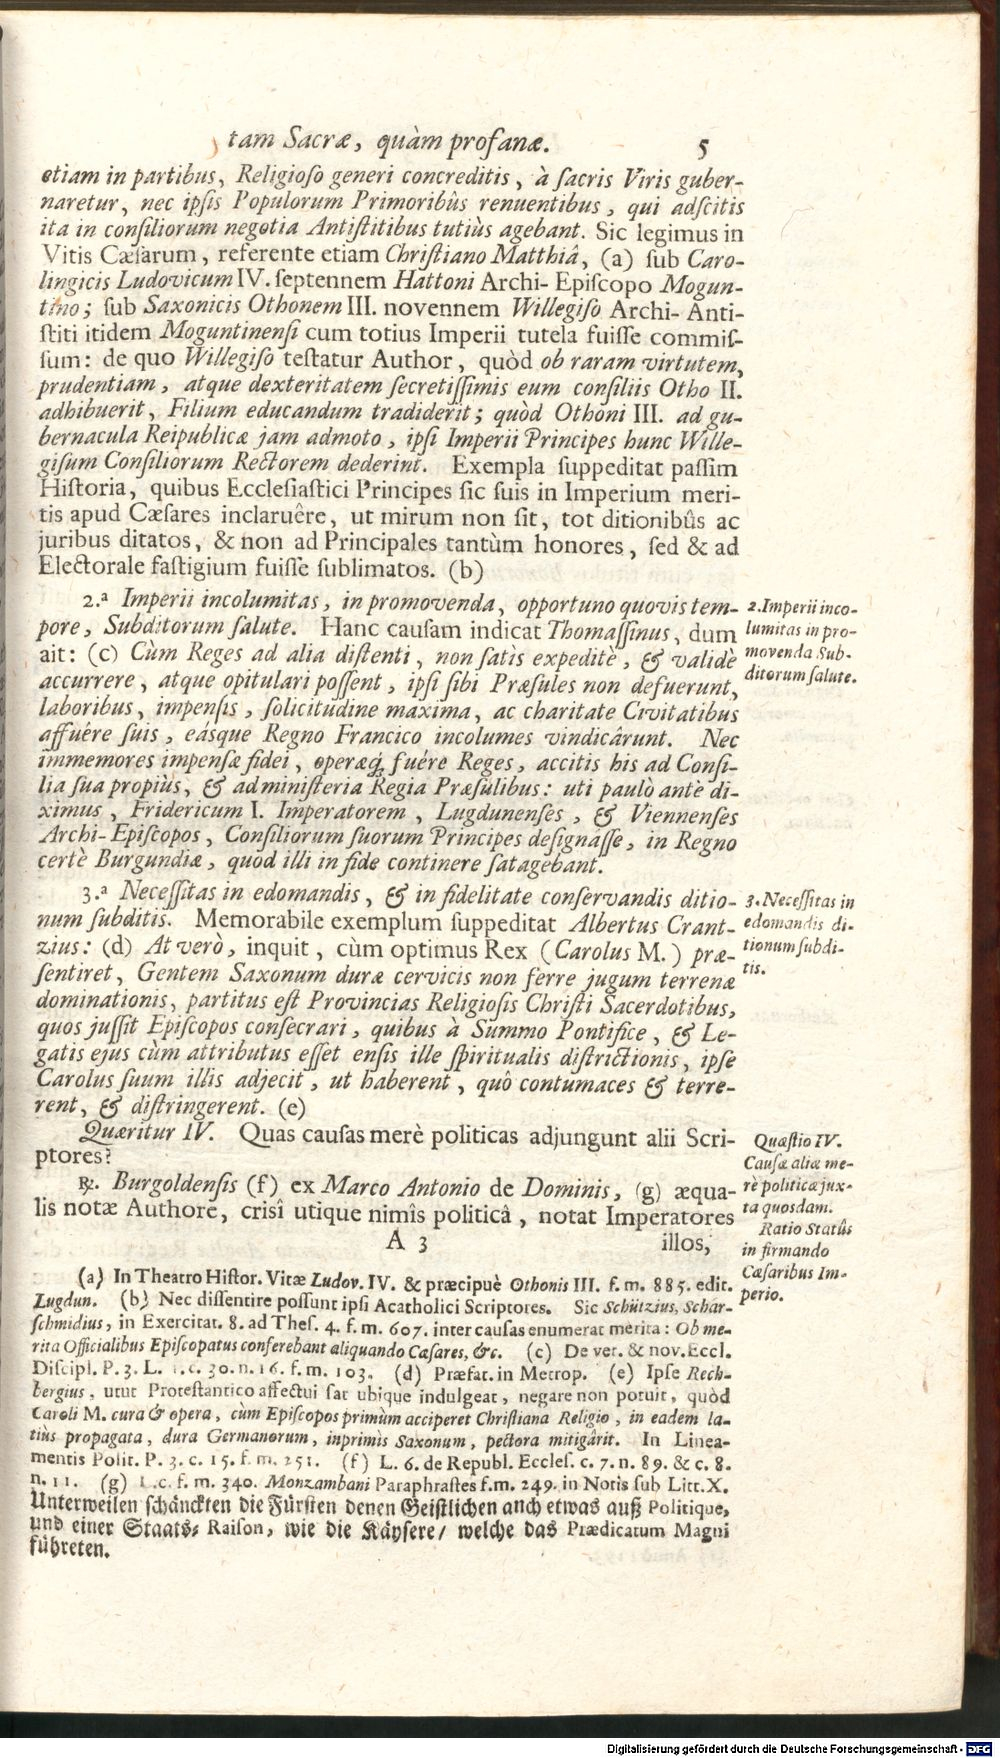 tam Sacræ, quàm profanæ. 5
etiam in partibus, Religioso generi concreditis, à sacris Viris guber-
naretur, nec ipsis Populorum Primoribûs renuentibus, qui adscitis
ita in consiliorum negotia Antistitibus tutiùs agebant. Sic legimus in
Vitis Cæsarum, referente etiam Christiano Matthiâ, (a) sub Caro-
lingicis Ludovicum IV. septennem Hattoni Archi-Episcopo Mogun-
tino; sub Saxonicis Othonem III. novennem Willegiso Archi-Anti-
stiti itidem Moguntinensi cum totius Imperii tutela fuisse commis-
sum: de quo Willegiso testatur Author, quòd ob raram virtutem,
prudentiam, atque dexteritatem secretissimis eum consiliis Otho II.
adhibuerit, Filium educandum tradiderit; quòd Othoni III. ad gu-
bernacula Reipublicæ jam admoto, ipsi Imperii Principes hunc Wille-
gisum Consiliorum Rectorem dederint. Exempla suppeditat passim
Historia, quibus Ecclesiastici Principes sic suis in Imperium meri-
tis apud Cæsares inclaruêre, ut mirum non sit, tot ditionibûs ac
juribus ditatos, & non ad Principales tantùm honores, sed & ad
Electorale fastigium fuisse sublimatos. (b)
2.ª Imperii incolumitas, in promovenda, opportuno quovis tem-
pore, Subditorum salute. Hanc causam indicat Thomassinus, dum
ait: (c) Cùm Reges ad alia distenti, non satìs expeditè, & validè
accurrere, atque opitulari possent, ipsi sibi Præsules non defuerunt,
laboribus, impensis, solicitudine maxima, ac charitate Civitatibus
affuére suis, eásque Regno Francico incolumes vindicârunt. Nec
immemores impensæ fidei, operæq; fuére Reges, accitis his ad Consi-
lia sua propiùs, & ad ministeria Regia Præsulibus: uti paulò antè di-
ximus, Fridericum I. Imperatorem, Lugdunenses, & Viennenses
Archi-Episcopos, Consiliorum suorum Principes designasse, in Regno
certè Burgundiæ, quod illi in fide continere satagebant.
2. Imperii inco-
lumitas in pro-
movenda Sub-
ditorum salute.
3.ª Necessitas in edomandis, & in fidelitate conservandis ditio-
num subditis. Memorabile exemplum suppeditat Albertus Crant-
zius: (d) At verò, inquit, cùm optimus Rex (Carolus M.) præ-
sentiret, Gentem Saxonum duræ cervicis non ferre jugum terrenæ
dominationis, partitus est Provincias Religiosis Christi Sacerdotibus,
quos jussit Episcopos consecrari, quibus à Summo Pontifice, & Le-
gatis ejus cùm attributus esset ensis ille spiritualis districtionis, ipse
Carolus suum illis adjecit, ut haberent, quô contumaces & terre-
rent, & distringerent. (e)
3. Necessitas in
edomandis di-
tionum subdi-
tis.
Quæritur IV. Quas causas merè politicas adjungunt alii Scri-
ptores?
℞. Burgoldensis (f) ex Marco Antonio de Dominis, (g) æqua-
lis notæ Authore, crisî utique nimîs politicâ, notat Imperatores
A 3 illos,
Quæstio IV.
Causæ aliæ me-
rè politicæ jux-
ta quosdam.
Ratio Statûs
in firmando
Cæsaribus Im-
perio.
(a) In Theatro Histor. Vitæ Ludov. IV. & præcipuè Othonis III. f. m. 885. edit.
Lugdun. (b) Nec dissentire possunt ipsi Acatholici Scriptores. Sic Schützius, Schar-
schmidius, in Exercitat. 8. ad Thes. 4. f. m. 607. inter causas enumerat merita: Ob me-
rita Officialibus Episcopatus conferebant aliquando Cæsares, &c. (c) De vet. & nov. Eccl.
Discipl. P. 3. L. 1. c. 30. n. 16. f. m. 103. (d) Præfat. in Metrop. (e) Ipse Rech-
bergius, utut Protestantico affectui sat ubique indulgeat, negare non potuit, quòd
Caroli M. cura & opera, cùm Episcopos primùm acciperet Christiana Religio, in eadem la-
tiùs propagata, dura Germanorum, inprimìs Saxonum, pectora mitigârit. In Linea-
mentis Polit. P. 3. c. 15. f. m. 251. (f) L. 6. de Republ. Eccles. c. 7. n. 89. & c. 8.
n. 11. (g) l. c. f. m. 340. Monzambani Paraphrastes f. m. 249. in Notis sub Litt. X.
Unterweilen schänckten die Fürsten denen Geistlichen auch etwas auß Politique,
und einer Staats-Raison, wie die Käysere/ welche das Prædicatum Magni
führeten.
Digitalisierung gefördert durch die Deutsche Forschungsgemeinschaft - DFG